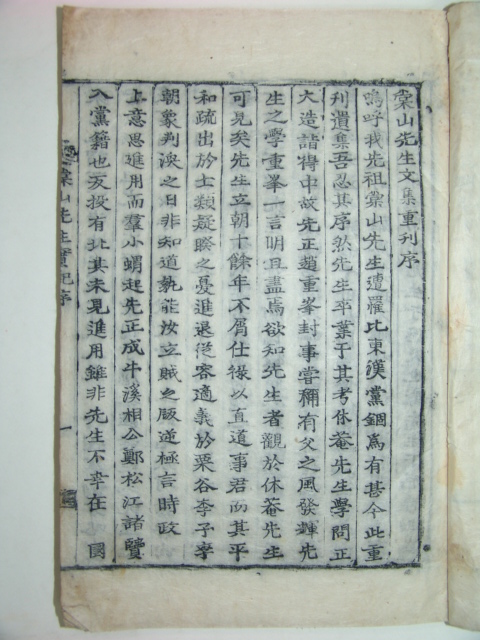 棠山先生文集重刋序
嗚呼我先祖棠山先生遭罹比東漢黨錮爲有甚今此重
刋遺集吾忍其序然先生卒業于其考休菴先生學問正
大造詣得中故先正趙重峯封事嘗稱有父之風發輝先
生之學重峯一言明且盡焉欲知先生者觀於休菴先生
可見矣先生立朝十餘年不屑仕祿以直道事君而其平
和疏出於士類疑睽之憂進退從容適義於栗谷李子李
朝象判渙之日非知道孰能汝立賊之叛逆極言時政
上意思進用而羣小蝟起先正成牛溪相公鄭松江諸賢
入黨籍也友投有北其未見進用雖非先生不幸在 國
棠山先生實記序
一